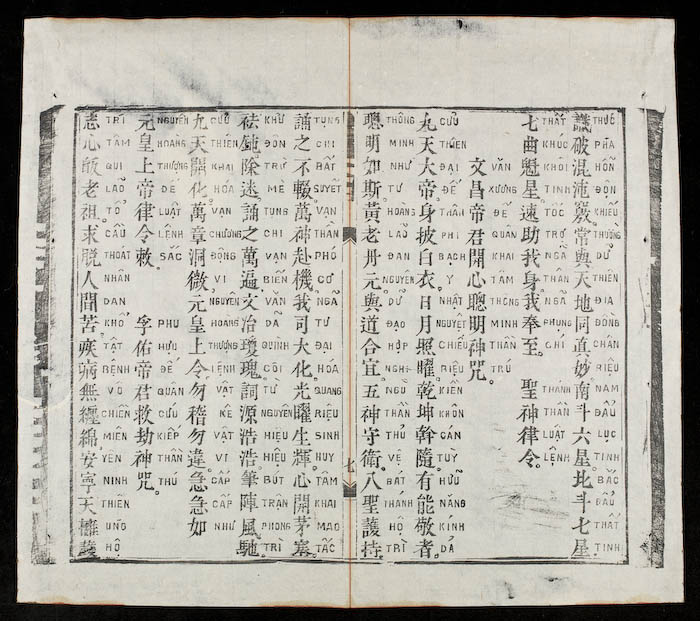 識破混沌竅。常與天地同真。妙南斗六星。北斗七星。
THỨC PHÁ HỖN ĐỘN KHIẾU THƯỜNG DỮ THIÊN ĐỊA ĐỒNG CHÂN RIỆU NAM ĐẨU LỤC TINH BẮC ĐẨU THẤT TINH
七曲魁星。速助我身。我奉至。聖神律令。
THẤT KHÚC KHÔI TINH TỐC TRỢ NGÃ THÂN NGÃ PHỤNG CHÍ THÁNH THẦN LUẬT LỆNH
文昌帝君開心聰明神咒。
VĂN XƯƠNG ĐẾ QUÂN KHAI TÂM THÔNG MINH THẦN TRÚ
九天大帝。身披白衣。日月照曜。乾坤幹隨。有能敬者。
CỬU THIÊN ĐẠI ĐẾ THÂN PHI BẠCH Y NHẬT NGUYỆT CHIẾU RIỆU KIỀN KHÔN CÁN TUỲ HỮU NĂNG KÍNH DẢ
聰明如斯。黃老丹元。與道合宜。五神守衛。八聖護持
THÔNG MINH NHƯ TƯ HOÀNG LÃO ĐAN NGUYÊN DỮ ĐẠO HỢP NGHI NGŨ THẦN THỦ VỆ BÁT THÁNH HỘ TRÌ
七
誦之不輟。萬神赴機。我司大化。光曜生輝。心開茅塞。
TỤNG CHI BẤT SUYẾT VẠN THẦN PHÓ CƠ NGÃ TƯ ĐẠI HÓA QUANG RIỆU SINH HUY TÂM KHAI MAO TẮC
祛鈍除迷。誦之萬遍。文治瓊瑰。詞源浩浩。筆陣風馳。
KHƯ ĐỘN TRỪ MÊ TỤNG CHI VẠN BIẾN VĂN DÃ QUỲNH CÔI TỪ NGUYÊN HIỆU HIỆU BÚT TRẬN PHONG TRÌ
九天開化。萬章洞微。元皇上令。勿稽勿違。急急如
CỬU THIÊN KHAI HÓA VẠN CHƯƠNG ĐỘNG VI NGUYÊN HOÀNG THƯỢNG LỆNH VẬT KÊ VẬT VI CẤP CẤP NHƯ
元皇上帝律令敕。孚佑帝君救劫神咒。
NGUYÊN HOÀNG THƯỢNG ĐẾ LUẬT LỆNH SẮC PHU HỰU ĐẾ QUÂN CỨU KIẾP THẦN TRÚ
志心皈老祖。求脫人間苦。疾病無纏綿。安寧天權護
TRÍ TÂM QUI LÃO TỔ CẦU THOÁT NHÂN DAN KHỔ TẬT BỆNH VÔ CHIÊN MIÊN YÊN NINH THIÊN UNG HỘ